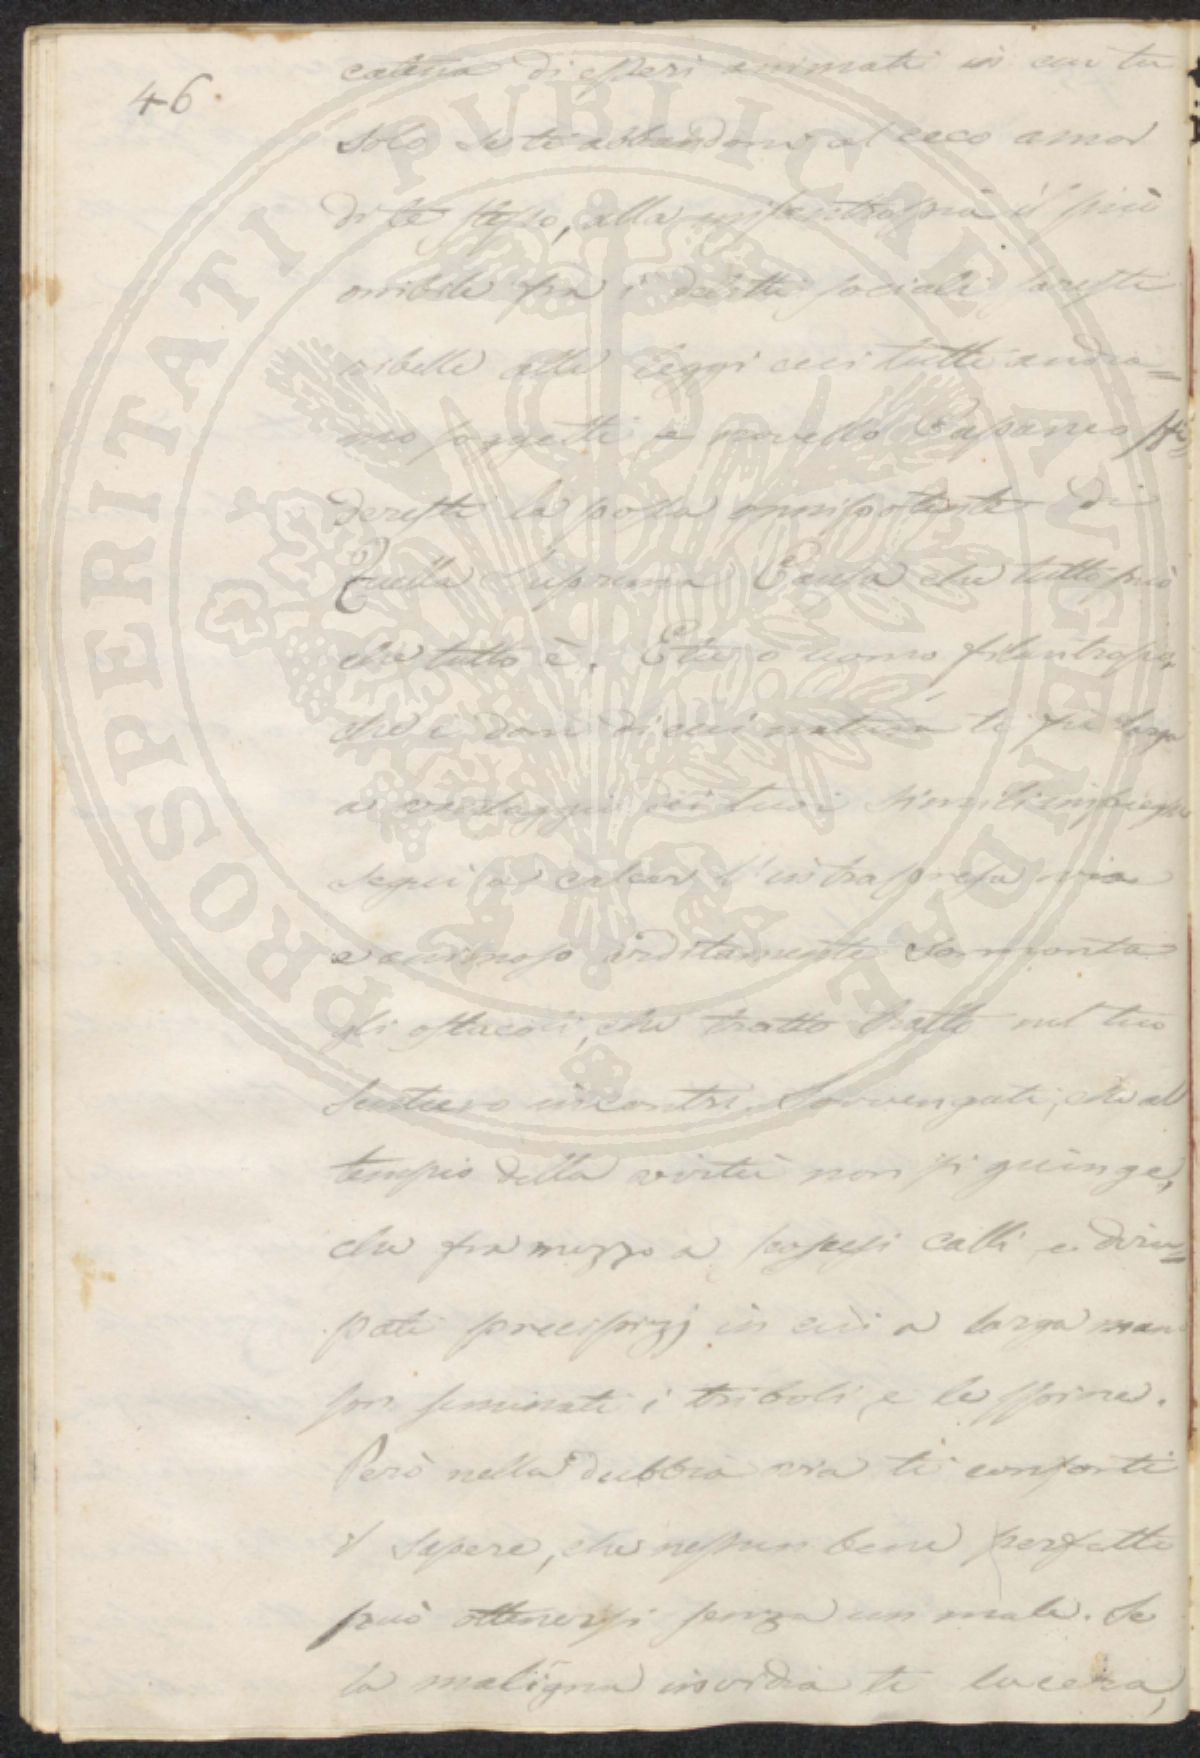 46.
catena di esseri animati in cui tu
solo se te abbandoni al cieco amor
di te stesso, alla misantropia il più
orribile fra i delitti sociali saresti
ribelle alle leggi cui tutti andia=
mo soggetti e novello Capaneo sfi=
deresti la possa onnipotente di
Quella Suprema Causa che tutto può
che tutto è. E tu o uomo filantropo,
che i doni di cui natura ti fu larga
a vantaggio dei tuoi simili impieghi
segui a calcar l'intrapresa via
e animoso arditamente sormonta
gli ostacoli, che tratto tratto nel tuo
sentiero incontri. Sovvengati, che al
tempio della virtù non si giunge,
che fra mezzo a scoscesi calli e diru=
pati precipizj in cui a larga mano
son seminati i triboli, e le spine.
Però nella dubbia via ti conforti
il sapere, che nessun bene perfetto
può ottenersi senza un male. Se
la maligna invidia ti lacera,
PROSPERITATI PUBLICAE AUGENDAE